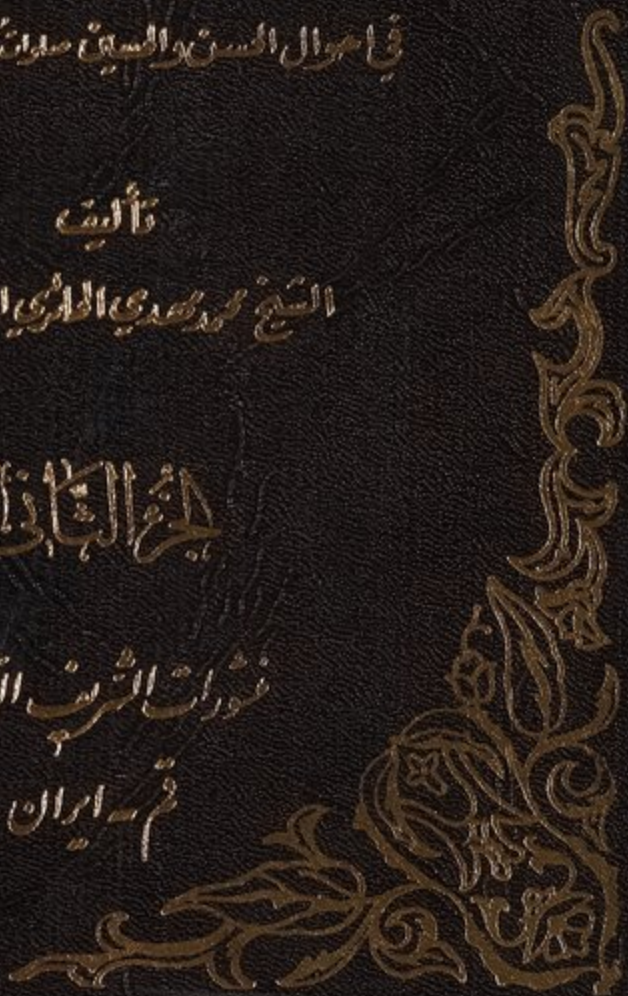 في احوال الحسن والحسين صلوات
تأليف
الشيخ محمد مهدي الحائري
الجزء الثاني
منشورات الشريف
قم - ايران